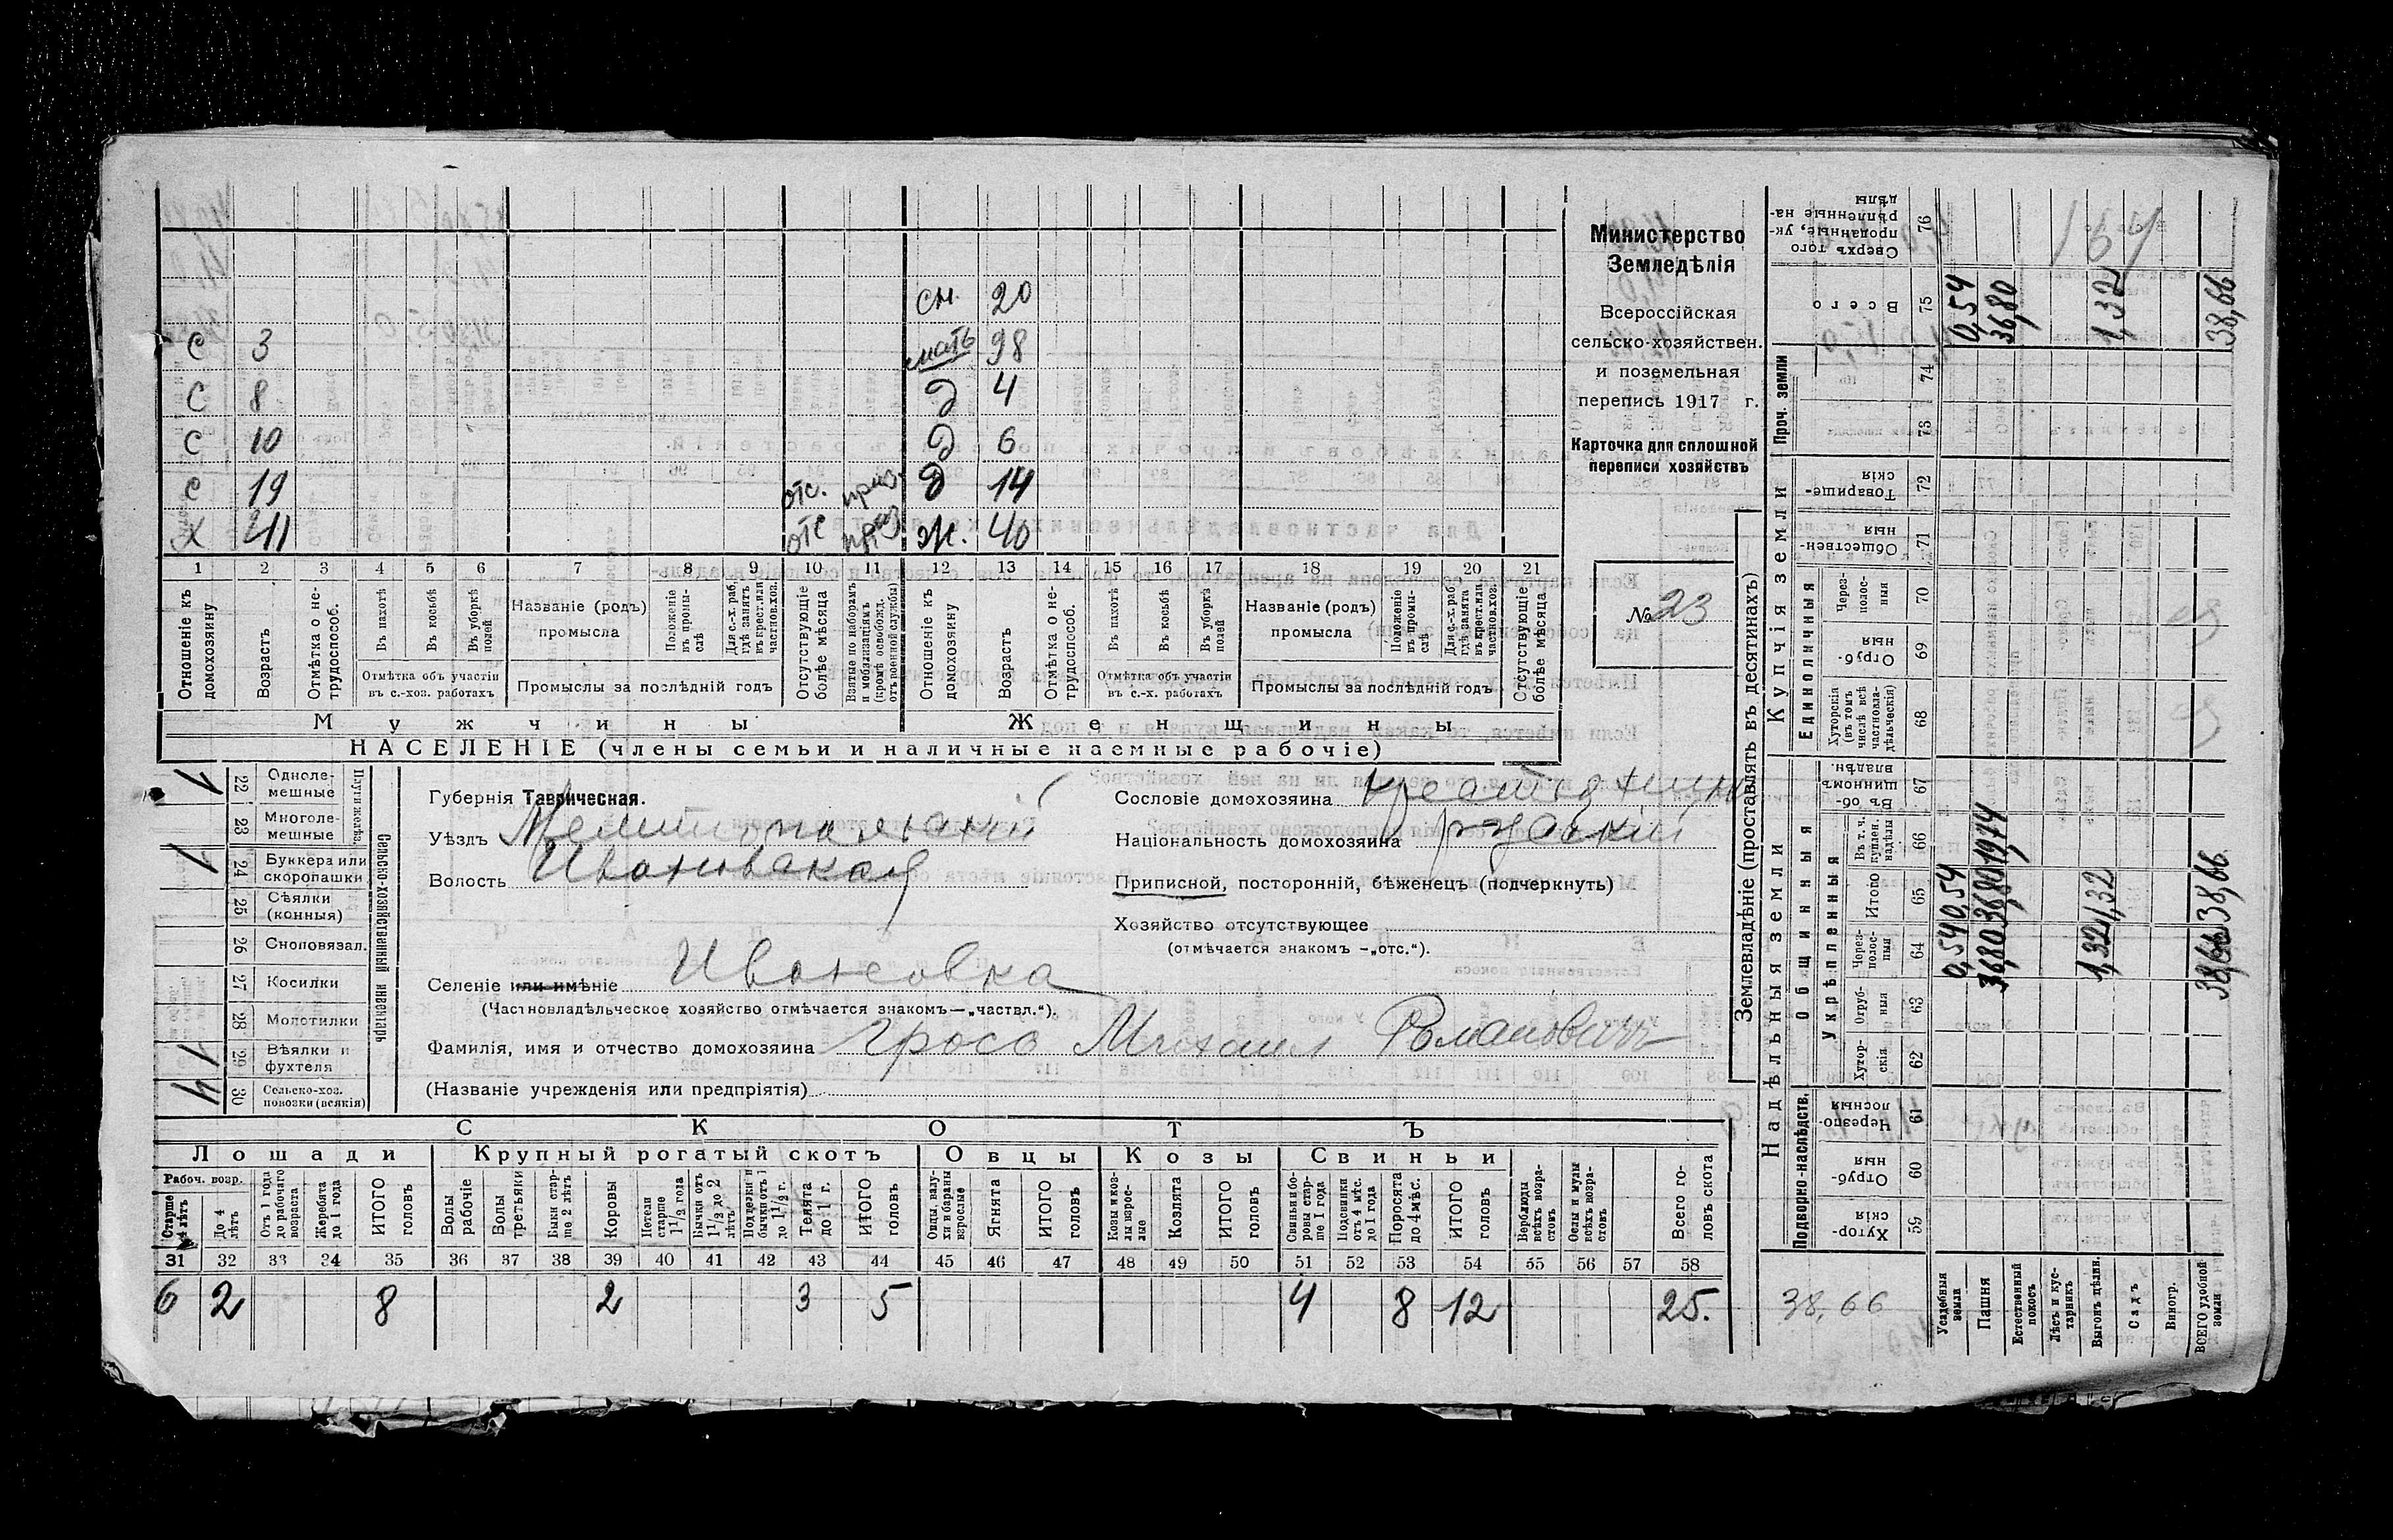 сн. 20
С 3 мать 98
С 8 д 4
С 10 д 6
С 19 отс. приз. д 14
Х 41 отс приз ж. 40
1 2 3 4 5 6 7 8 9 10 11 12 13 14 15 16 17 18 19 20 21
Отношеніе къ домохозяину
Возрастъ
Отмѣтка о нетрудоспособ.
Въ пахотѣ
Въ косьбѣ
Въ уборкѣ полей
Отмѣтка объ участіи въ с.-хоз. работахъ
Названіе (родъ) промысла
Положеніе въ промыслѣ
Для с.-х. раб. гдѣ занятъ въ крест. или частнов. хоз.
Промыслы за послѣдній годъ
Отсутствующіе болѣе мѣсяца
Взятые по наборамъ и мобилизаціямъ (кромѣ освобожд. отъ военной службы)
Отношеніе къ домохозяину
Возрастъ
Отмѣтка о нетрудоспособ.
Въ пахотѣ
Въ косьбѣ
Въ уборкѣ полей
Отмѣтка объ участіи въ с.-х. работахъ
Названіе (родъ) промысла
Положеніе въ промыслѣ
Для с.-х. раб. гдѣ занята въ крест. или частнов. хоз.
Промыслы за послѣдній годъ
Отсутствующіе болѣе мѣсяца
Мужчины Женщины
НАСЕЛЕНІЕ (члены семьи и наличные наемные рабочіе)
Министерство
Земледѣлія
Всероссійская
сельско-хозяйствен.
и поземельная
перепись 1917 г.
Карточка для сплошной
переписи хозяйствъ
№ 23
1 22 Одноле-мешные
23 Многоле-мешные
Плуги желѣз.
1 24 Буккера или скоропашки
25 Сѣялки (конныя)
26 Сноповязал.
27 Косилки
28 Молотилки
1 29 Вѣялки и фухтеля
4 30 Сельско-хоз. повозки (всякія)
Сельско-хозяйственный инвентарь
Губернія Таврическая.
Уѣздъ Мелитопольскій
Волость Ивановская
Сословіе домохозяина крестьянин
Національность домохозяина русскій
Приписной, посторонній, бѣженецъ (подчеркнуть)
Хозяйство отсутствующее
(отмѣчается знакомъ -„отс.“).
Селеніе или имѣніе Ивановка
(Частновладѣльческое хозяйство отмѣчается знакомъ—„частвл.“).
Фамилія, имя и отчество домохозяина Гросс Михаил Романович
(Названіе учрежденія или предпріятія)
СКОТЪ
Лошади Крупный рогатый скотъ Овцы Козы Свиньи
Рабоч. возр.
Старше 4 лѣтъ
До 4 лѣтъ
Отъ 1 года до рабочаго возраста
Жеребята до 1 года
ИТОГО головъ
Волы рабочіе
Волы третьяки
Быки старше 2 лѣтъ
Коровы
Нетели старше 1 1/2 года
Бычки отъ 1 1/2 до 2 лѣтъ
Подтелки и бычки отъ 1 до 1 1/2 г.
Телята до 1 г.
ИТОГО головъ
Овцы, валухи и бараны взрослые
Ягнята
ИТОГО головъ
Козы и козлы взрослые
Козлята
ИТОГО головъ
Свиньи и боровы старше 1 года
Подсвинки отъ 4 мѣс. до 1 года
Поросята до 4 мѣс.
ИТОГО головъ
Верблюды всѣхъ возрастовъ
Ослы и мулы всѣхъ возрастовъ
Всего головъ скота
31 32 33 34 35 36 37 38 39 40 41 42 43 44 45 46 47 48 49 50 51 52 53 54 55 56 57 58
6 2 8 2 3 5 4 8 12 25.
Землевладѣніе (проставлять въ десятинахъ)
Надѣльныя земли
Купчія земли
Проч. земли
Подворно-наслѣдств.
Общинныя
Укрѣпленныя
Единоличныя
Сверхъ того проданные, укрѣпленные надѣлы 76
Всего 75 0,54 36,80 1,32 38,66
74
73
Товарищескія 72
Общественныя 71
Черезполосныя 70
Отрубныя 69
Хуторскія (въ томъ числѣ всѣ частновладѣльческія) 68
Въ общинномъ владѣн. 67
Въ т. ч. куплен. надѣлы 66 19,74
Итого 65 0,54 36,80 1,32 38,66
Черезполосныя 64 0,54 36,80 1,32 38,66
Отрубныя 63
Хуторскія 62
Черезполосныя 61
Отрубныя 60
Хуторскія 59
38,66
Усадебныя земли
Пашня
Естественный покосъ
Лѣсъ и кустарникъ
Выгонъ цѣлин.
Садъ
Виногр.
ВСЕГО удобной земли